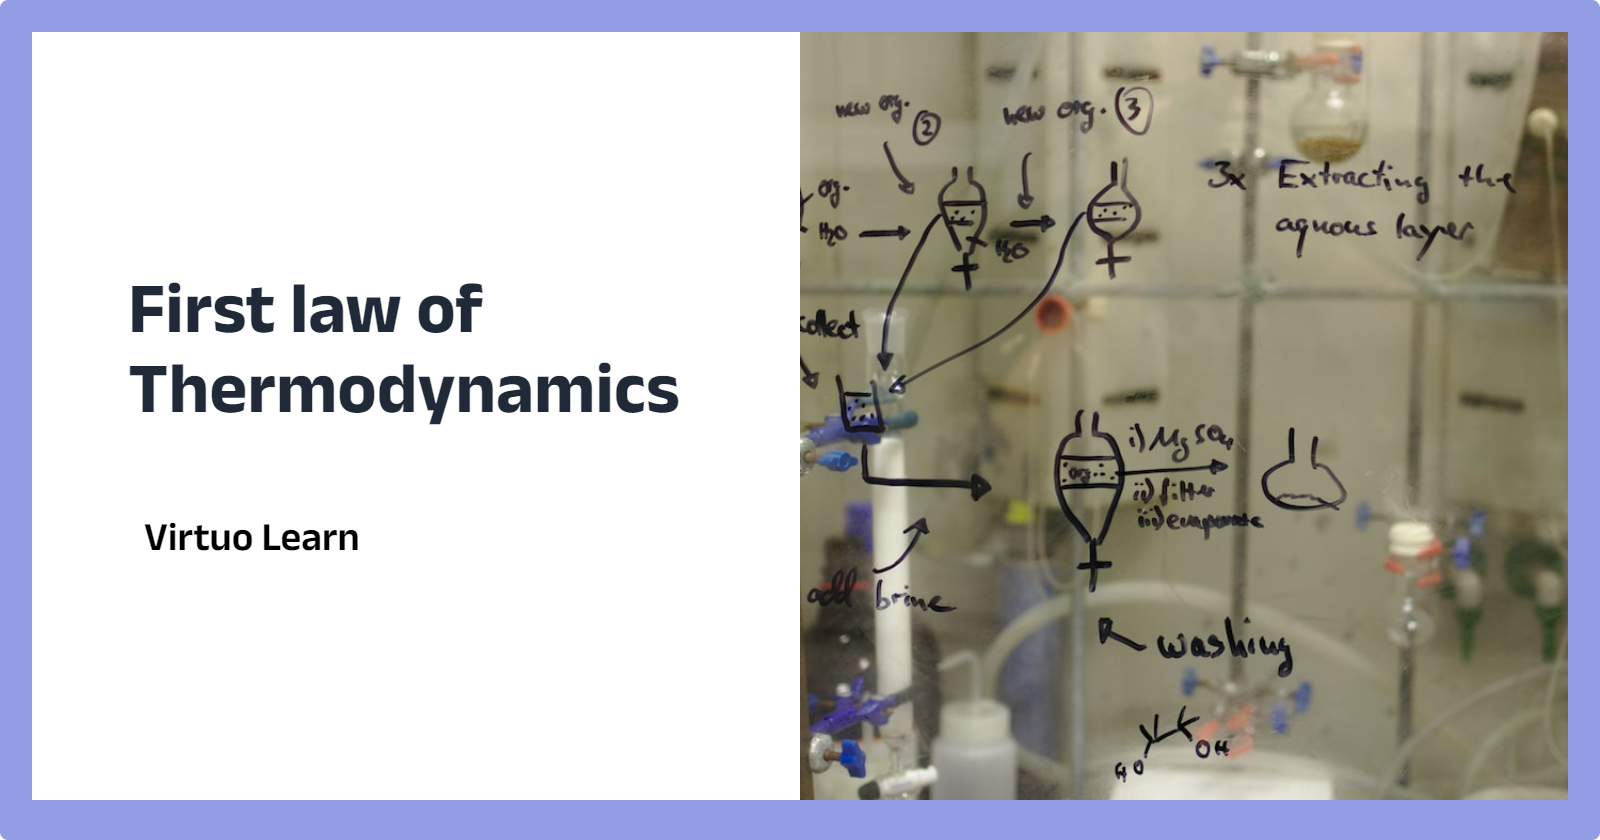 First law of
Thermodynamics
Virtuo Learn
new org. ②
new org. ③
org.
H₂O
H₂O
3x Extracting the
aquous layer
collect
org
i) MgSO₄
ii) filter
iii) evaporate
add brine
washing
HO
OH